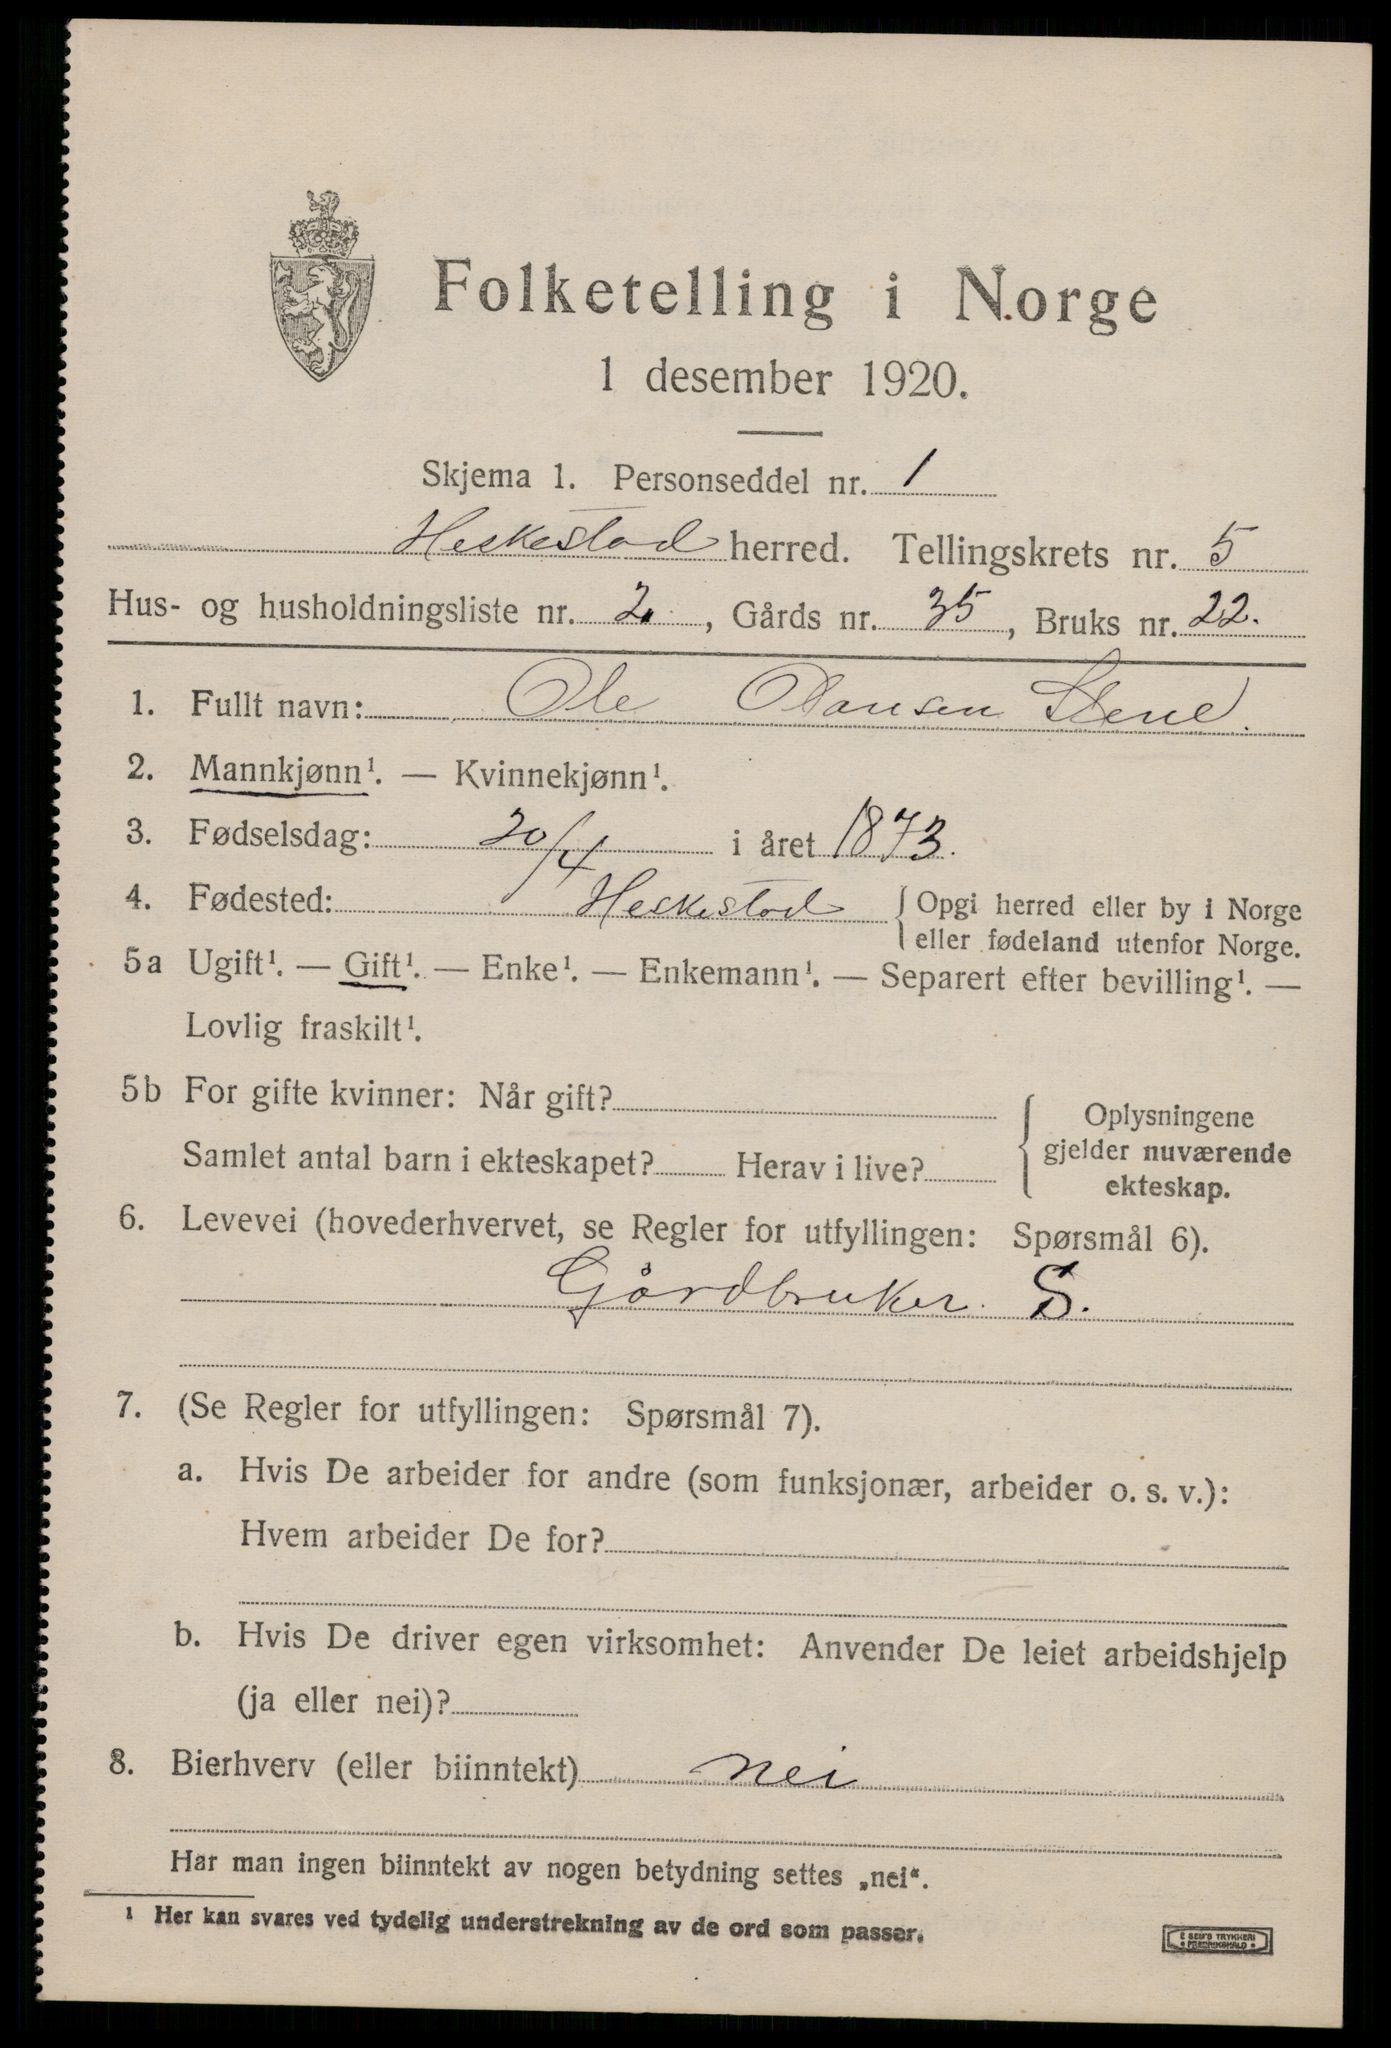 Folketelling i Norge
1 desember 1920.
Skjema 1. Personseddel nr. 1
Heskestad herred. Tellingskrets nr. 5
Hus- og husholdningsliste nr. 2, Gårds nr. 35, Bruks nr. 22.
1. Fullt navn: Ole Olausen Stene.
2. Mannkjønn¹. — Kvinnekjønn¹.
3. Fødselsdag: 20/4 i året 1873.
4. Fødested: Heskestad { Opgi herred eller by i Norge
eller fødeland utenfor Norge.
5a Ugift¹. — Gift¹. — Enke¹. — Enkemann¹. — Separert efter bevilling¹. —
Lovlig fraskilt¹.
5b For gifte kvinner: Når gift?
Samlet antal barn i ekteskapet? Herav i live?
{ Oplysningene
gjelder nuværende
ekteskap.
6. Levevei (hovederhvervet, se Regler for utfyllingen: Spørsmål 6).
Gårdbruker. S.
7. (Se Regler for utfyllingen: Spørsmål 7).
a. Hvis De arbeider for andre (som funksjonær, arbeider o. s. v.):
Hvem arbeider De for?
b. Hvis De driver egen virksomhet: Anvender De leiet arbeidshjelp
(ja eller nei)?
8. Bierhverv (eller biinntekt) nei
Har man ingen biinntekt av nogen betydning settes „nei“.
¹ Her kan svares ved tydelig understrekning av de ord som passer.
E SEM'S TRYKKERI
• FREDRIKSHALD •